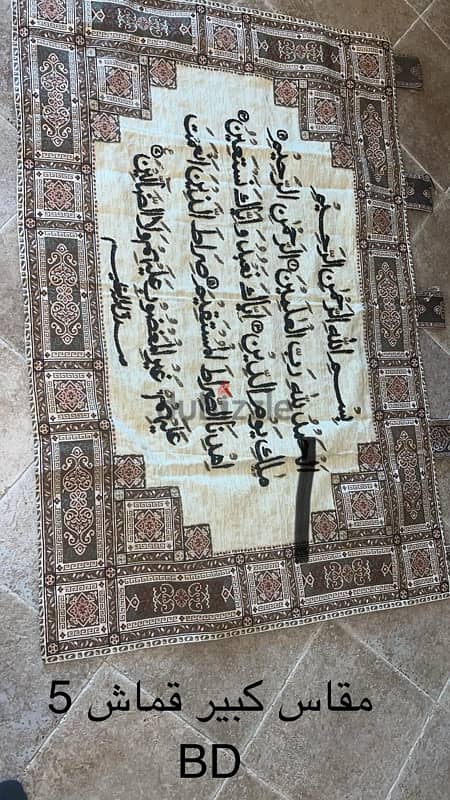 بِسْمِ اللَّهِ الرَّحْمَٰنِ الرَّحِيمِ
الْحَمْدُ لِلَّهِ رَبِّ الْعَلَمِينَ الرَّحْمَٰنِ الرَّحِيمِ
مَلِكِ يَوْمِ الدِّينِ إِيَّاكَ نَعْبُدُ وَإِيَّاكَ نَسْتَعِينُ
اهْدِنَا الصِّرَاطَ الْمُسْتَقِيمَ صِرَاطَ الَّذِينَ أَنْعَمْتَ
عَلَيْهِمْ غَيْرِ الْمَغْضُوبِ عَلَيْهِمْ وَلَا الضَّالِّينَ
صدق الله العظيم
dubizzle
مقاس كبير قماش 5
BD